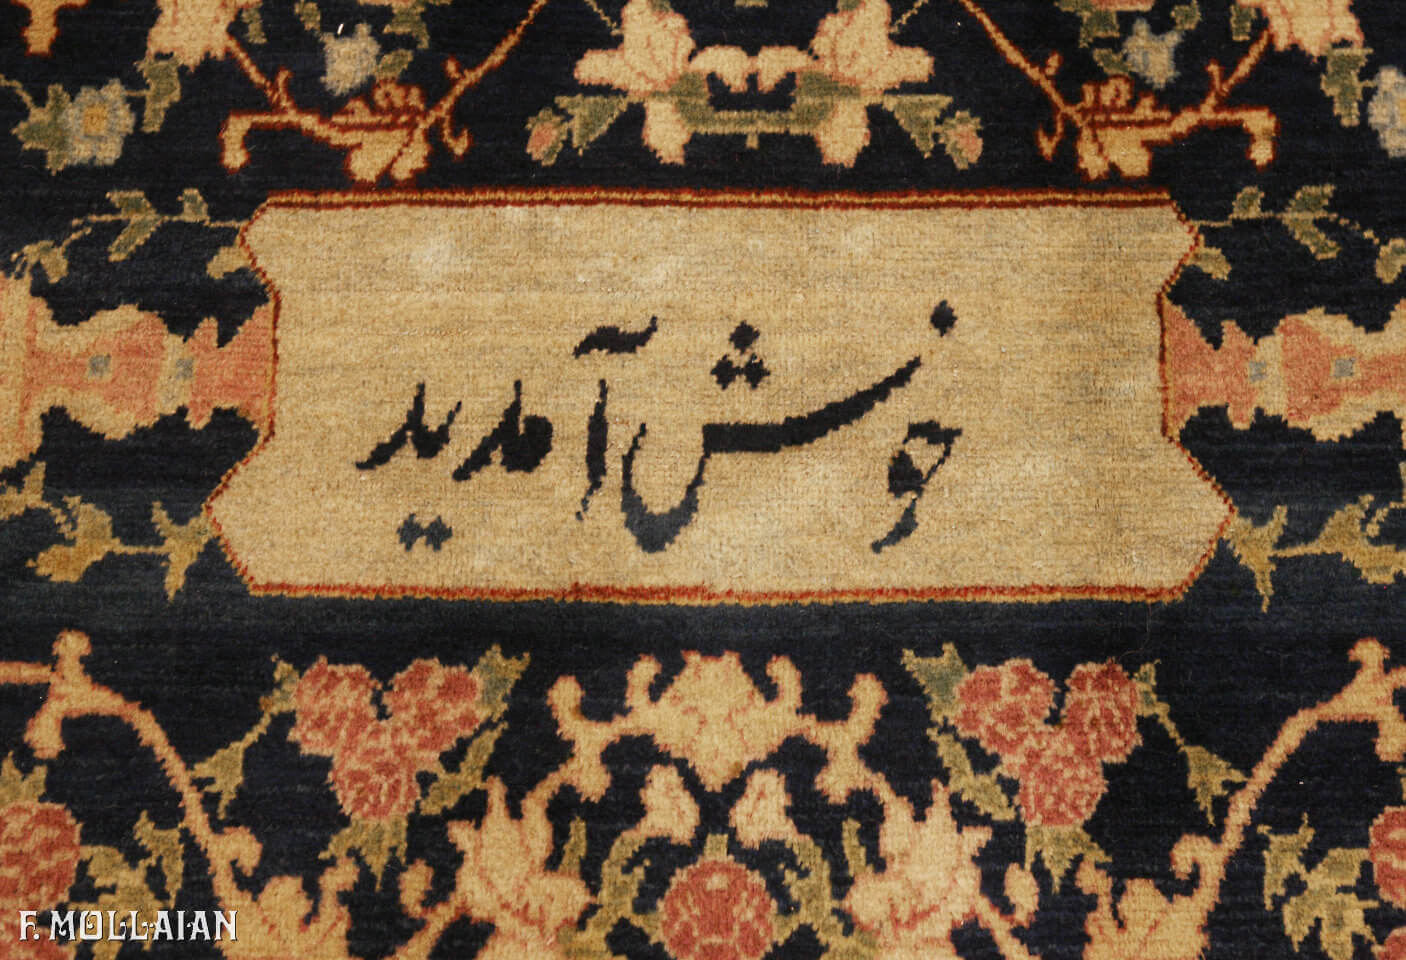 خوش آمدید
F. MOLLAIAN